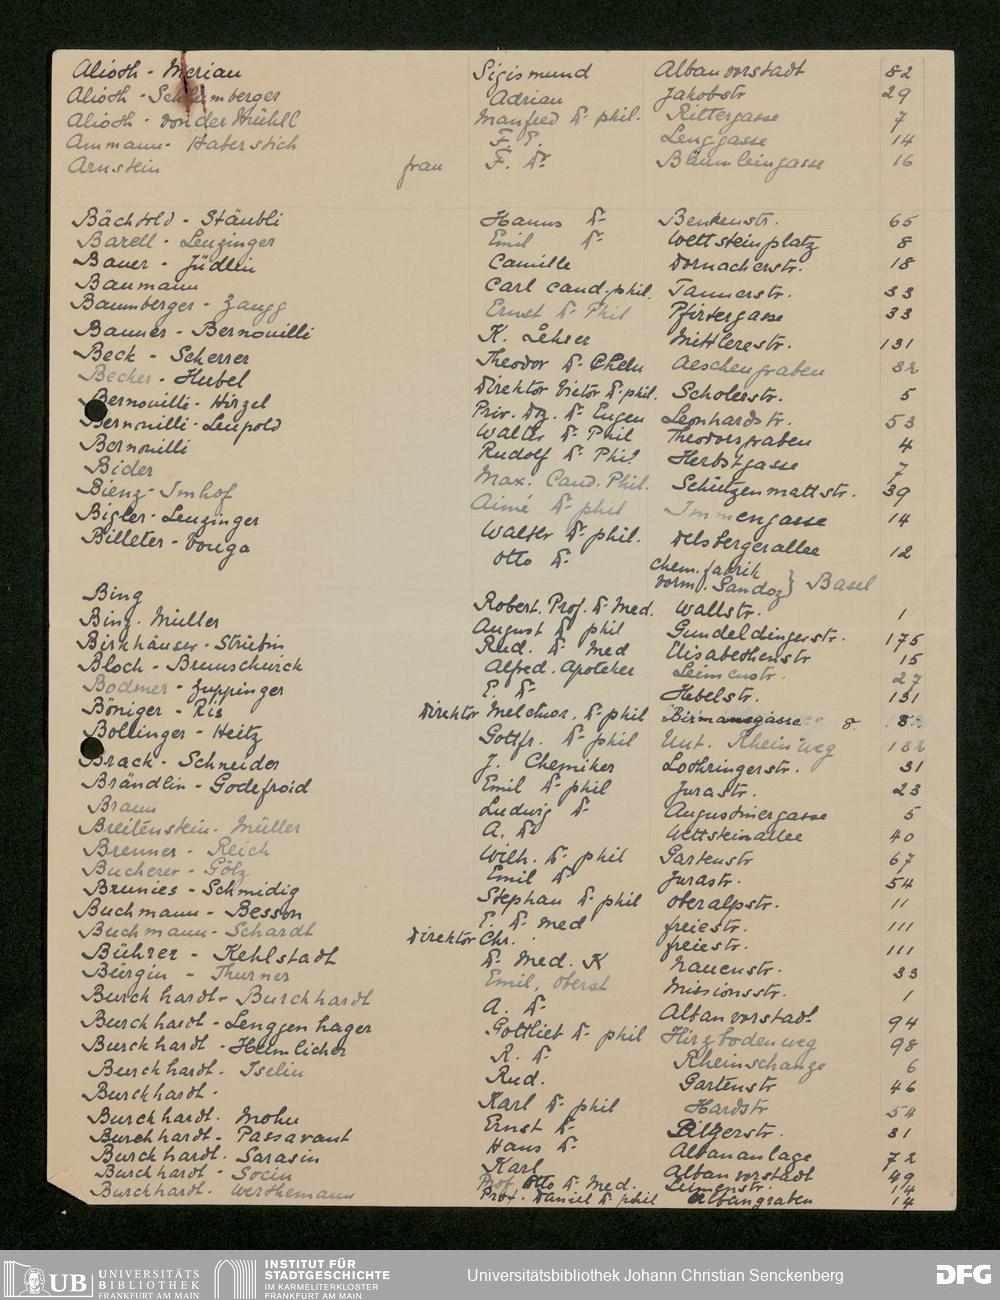 Alioth - Merian Sigismund Albanvorstadt 82
Alioth - Schlumberger Adrian Jakobstr 29
Alioth - von der Mühll Manfred Dr phil. Rittergasse 7
Ammann - Haberstich F. E. Lenggasse 14
Arnstein frau F. Dr Bäumleingasse 16
Bächtold - Stäubli Hanns Dr Benkenstr. 65
Barell - Leuzinger Emil Dr Wettsteinplatz 8
Bauer - Jüdlin Camille Dornacherstr. 18
Baumann Carl cand. phil. Tannerstr. 33
Baumberger - Zaugg Ernst Dr Phil Pfirtergasse 33
Baumer - Bernouilli K. Lehrer Mittlerestr. 131
Beck - Scherrer Theodor Dr Chem Aeschengraben 32
Becher - Hubel Direktor Victor Dr phil. Scholerstr. 5
Bernouilli - Hirzel Priv. Doz. Dr Eugen Leonhardstr. 53
Bernouilli - Leupold Walter Dr Phil Theodorsgraben 4
Bernouilli Rudolf Dr Phil Herbstgasse 7
Bider Max. Cand. Phil. Schützenmattstr. 39
Bienz - Imhof Aimé Dr phil Immengasse 14
Bigler - Leuzinger Walter Dr phil. Delsbergerallee 12
Billeter - Vouga Otto Dr chem. fabrik
vorm. Sandoz } Basel
Bing Robert. Prof. Dr Med. Wallstr. 1
Binz - Müller August Dr phil Gundeldingerstr. 175
Birkhäuser - Strübin Rud. Dr Med Elisabethenstr 15
Bloch - Brunschwick Alfred. Apotheker Leimenstr. 27
Bodmer - Zuppinger E. Dr Hebelstr. 131
Böniger - Ris Direktor Melchior. Dr phil Birmannsgasse 8 8
Bollinger - Heitz Gottfr. Dr phil Unt. Rheinweg 132
Brack - Schneider J. Chemiker Lothringerstr. 31
Brändlin - Godefroid Emil Dr phil Jurastr. 23
Braun Ludwig Dr Augustinergasse 5
Breitenstein - Müller A. Dr Wettsteinallee 40
Brenner - Reich Wilh. Dr phil Gartenstr 67
Bucherer - Gölz Emil Dr Jurastr. 54
Brunies - Schmidig Stephan Dr phil Oberalpstr. 11
Buchmann - Besson E. Dr med freiestr. 111
Buchmann - Schardt Direktor Chr. freiestr. 111
Bührer - Kehlstadt Dr Med. K Nauenstr. 33
Bürgin - Thurner Emil, Oberst Missionsstr. 1
Burckhardt - Burckhardt A. Dr Albanvorstadt 94
Burckhardt - Lenggenhager Gottlieb Dr phil Hirzbodenweg 98
Burckhardt - Heimlicher R. Dr Rheinschanze 6
Burckhardt - Iselin Rud. Gartenstr 46
Burckhardt - Karl Dr phil Hardstr 54
Burckhardt - Mohn Ernst Dr Pilgerstr. 31
Burckhardt - Passavant Hans Dr Albananlage 72
Burckhardt - Sarasin Karl Albanvorstadt 49
Burckhardt - Socin Prof. Otto Dr Med. Leimenstr. 14
Burckhardt - Werthemann Prof. Daniel Dr phil Albangraben 14
UB UNIVERSITÄTS BIBLIOTHEK FRANKFURT AM MAIN
INSTITUT FÜR STADTGESCHICHTE IM KARMELITERKLOSTER FRANKFURT AM MAIN
Universitätsbibliothek Johann Christian Senckenberg
DFG